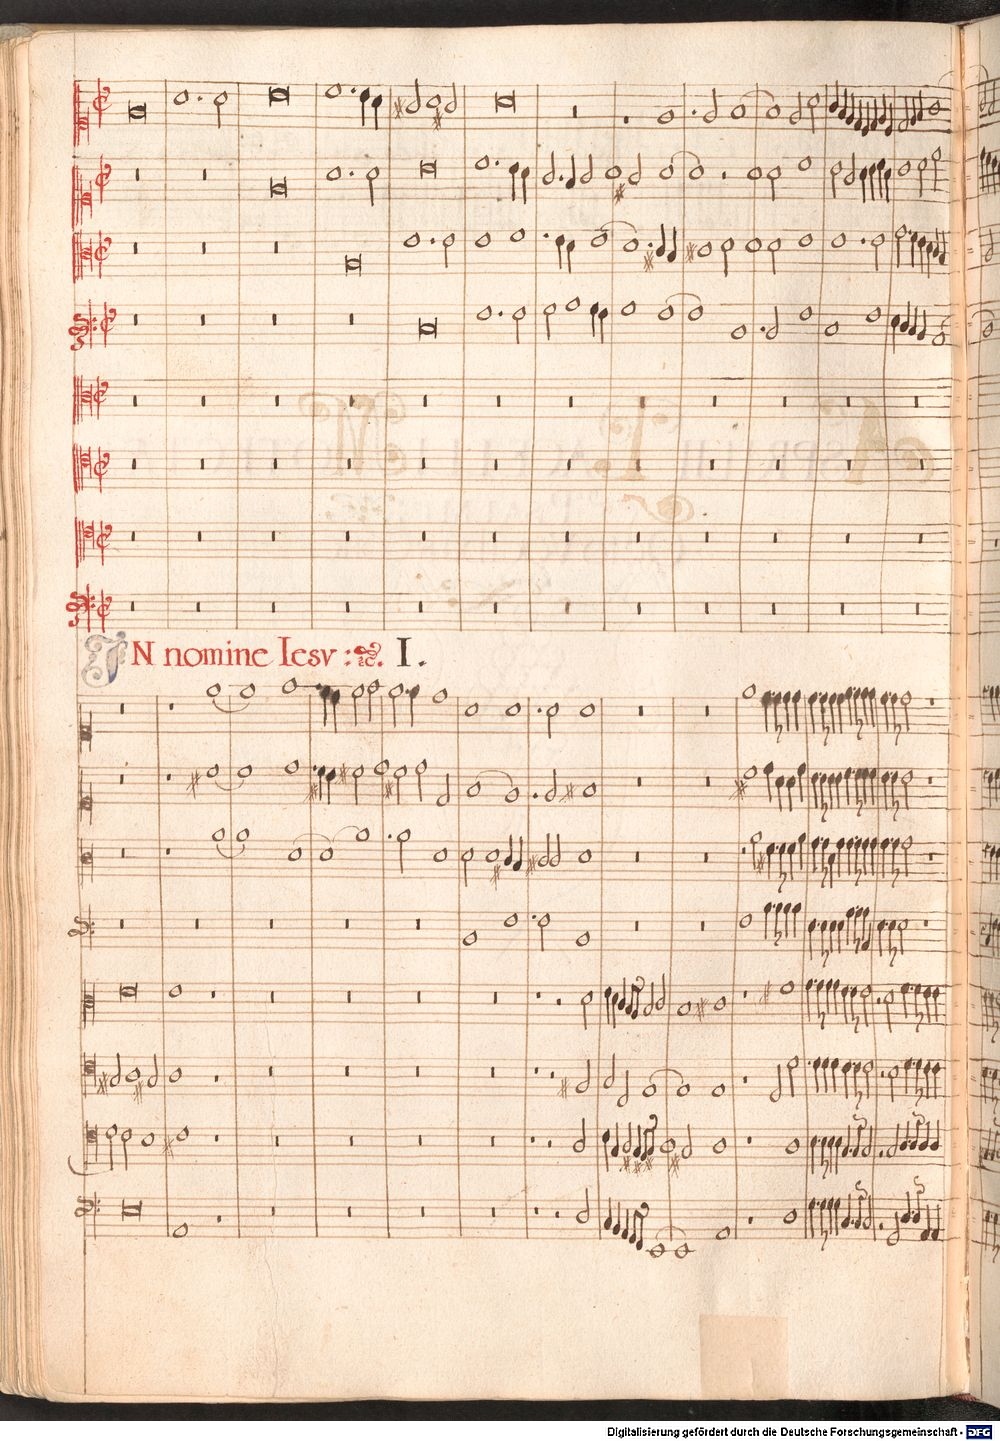 IN nomine Iesv : ic. I.
Digitalisierung gefördert durch die Deutsche Forschungsgemeinschaft - DFG